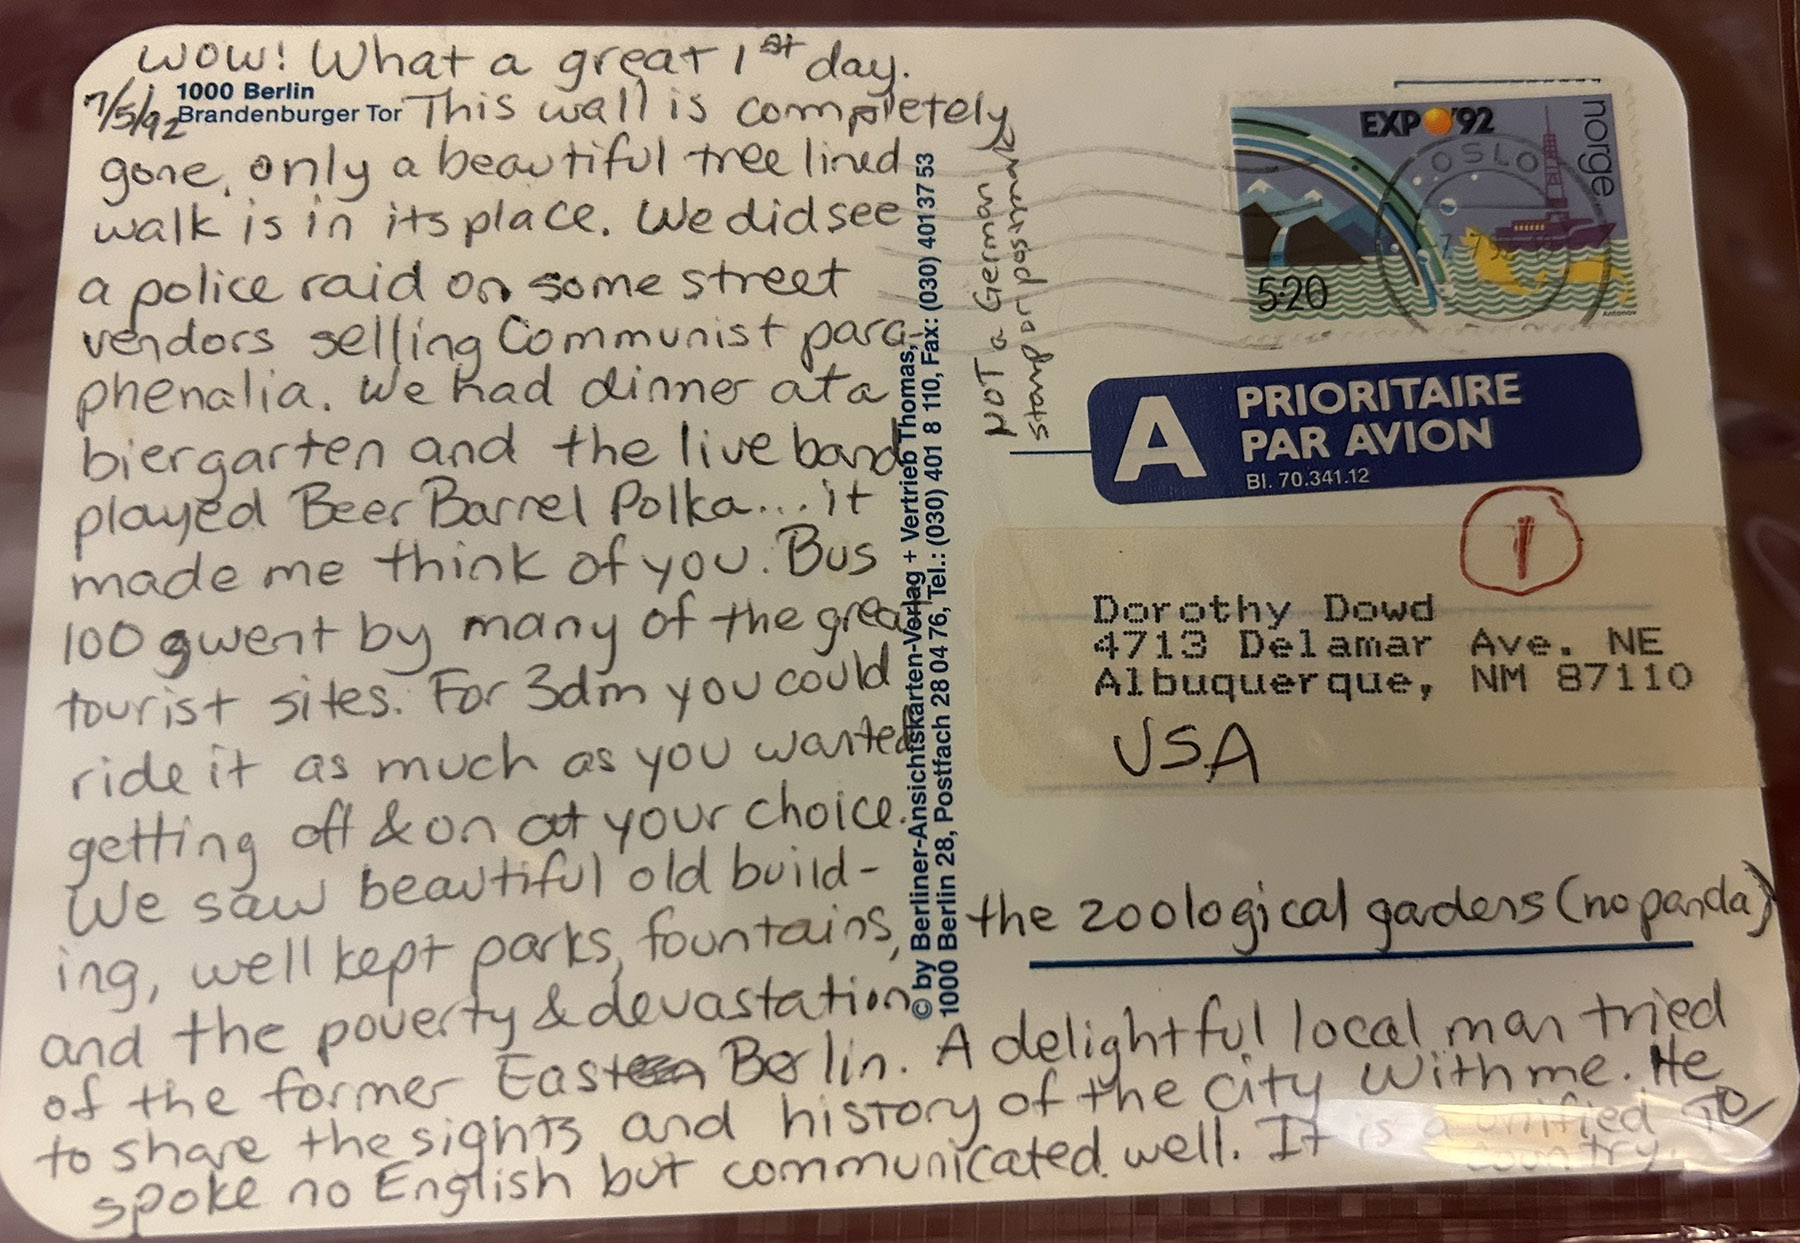 WOW! What a great 1st day.
7/5/92
1000 Berlin
Brandenburger Tor
This wall is completely
gone, only a beautiful tree lined
walk is in its place. We did see
a police raid on some street
vendors selling Communist para-
phenalia. We had dinner at a
biergarten and the live band
played Beer Barrel Polka... it
made me think of you. Bus
100 went by many of the great
tourist sites. For 3dm you could
ride it as much as you wanted
getting off & on at your choice.
We saw beautiful old build-
ing, well kept parks, fountains,
the zoological gardens (no panda)
and the poverty & devastation
of the former East Berlin. A delightful local man tried
to share the sights and history of the city with me. He
spoke no English but communicated well. It is a unified
country.
TD
© by Berliner-Ansichtskarten-Verlag + Vertrieb Thomas,
1000 Berlin 28, Postfach 28 04 76, Tel.: (030) 401 8 110, Fax: (030) 401 37 53
NOT a German
stamp or postmark
EXPO '92
norge
OSLO
5·20
Antonov
A
PRIORITAIRE
PAR AVION
Bl. 70.341.12
1
Dorothy Dowd
4713 Delamar Ave. NE
Albuquerque, NM 87110
USA